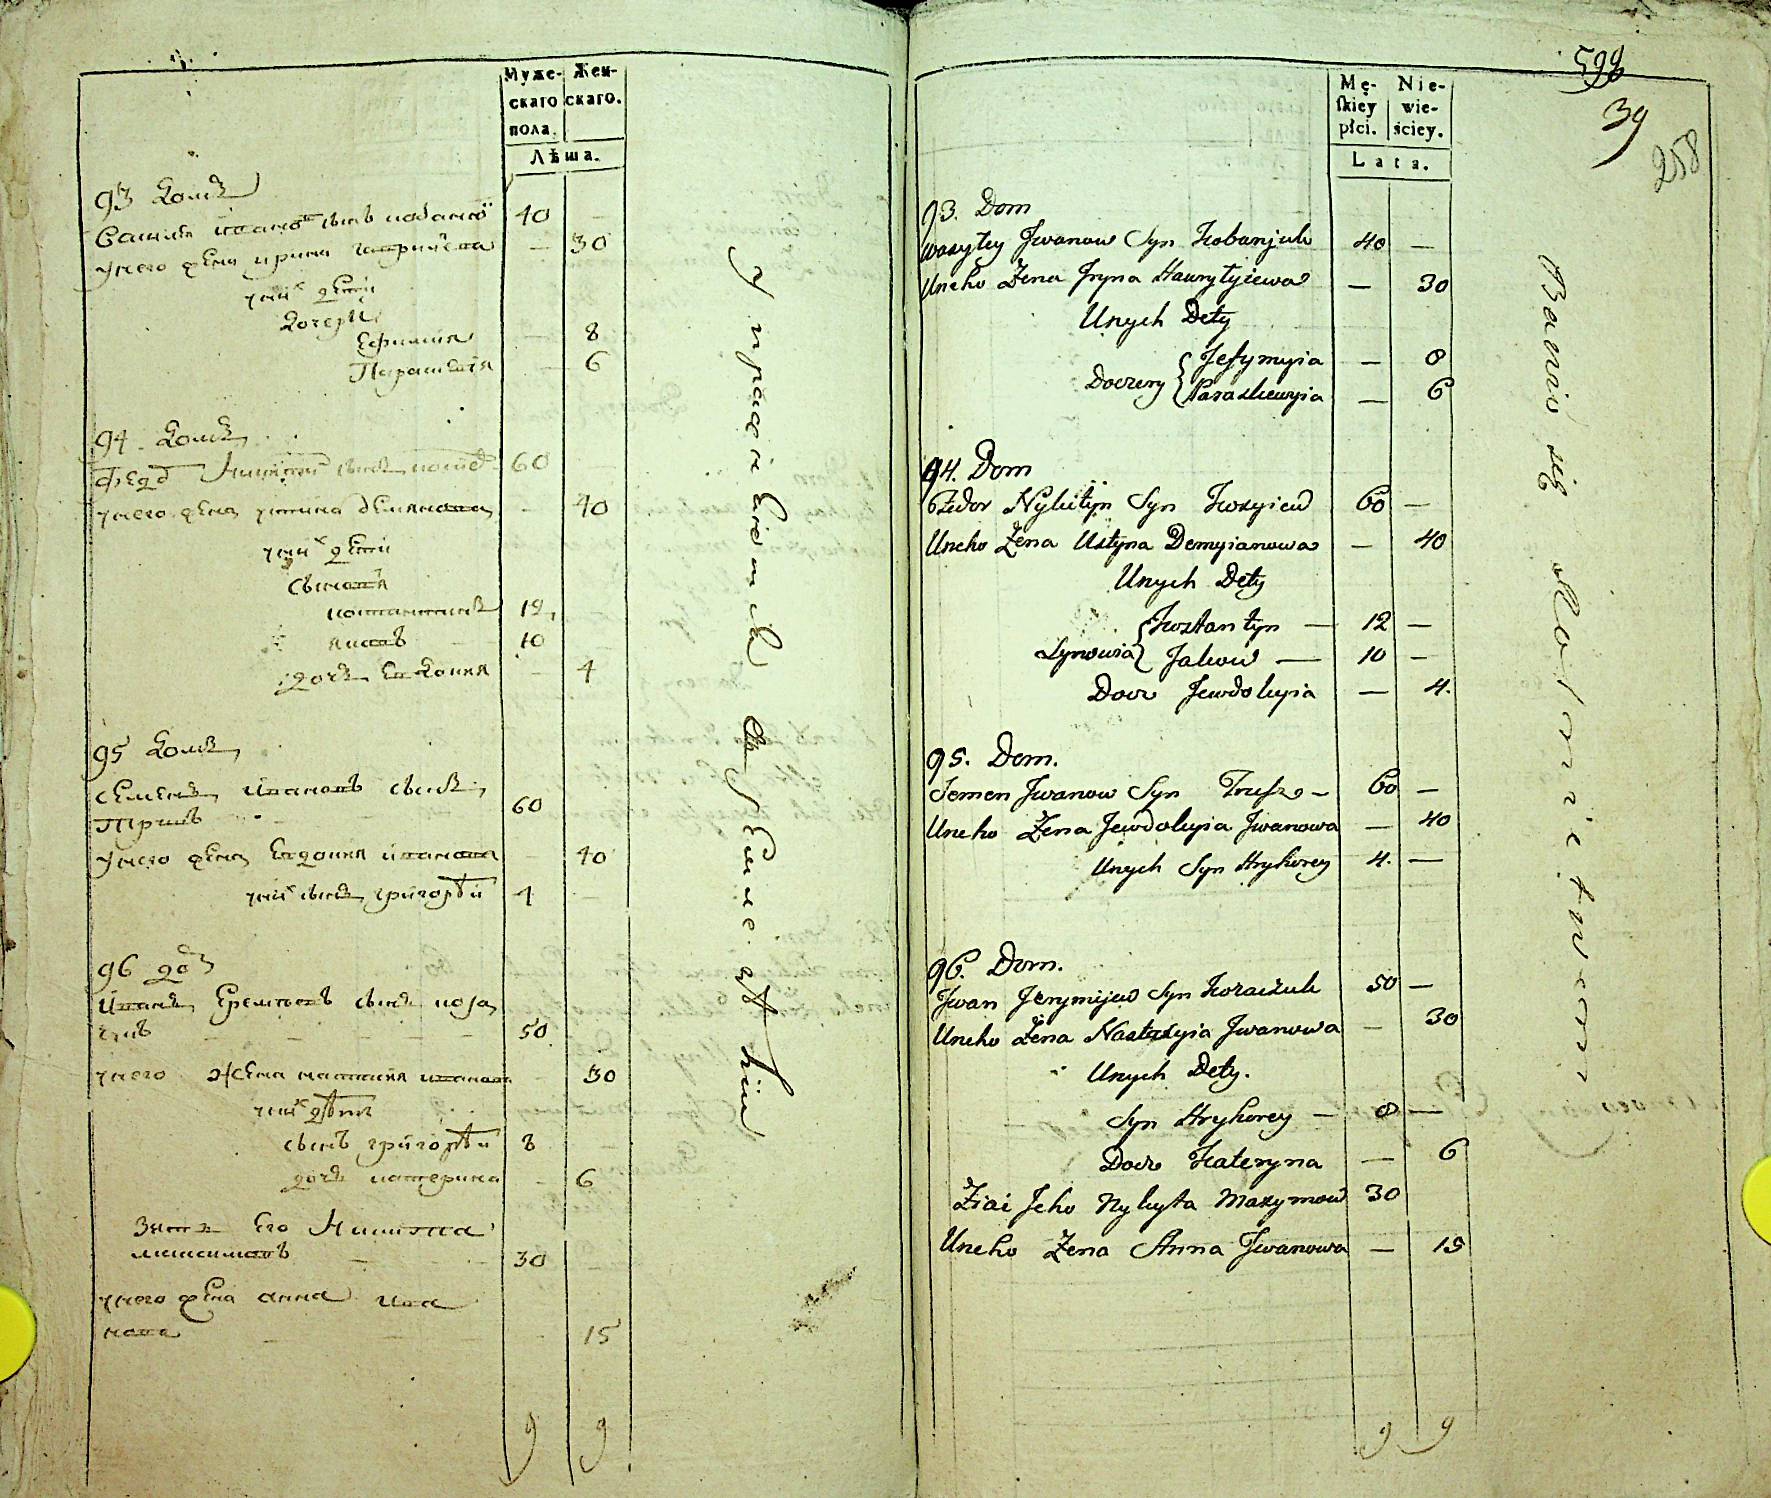 Муже- Жен-
скаго скаго.
пола.
Лѣта.
93 домъ
Василій Ивановъ сынъ кобанюкъ 40 —
у него жена ирина гаврилова — 30
у них дети
дочери
Ефимия — 8
Парасковия — 6
94 домъ
Федор Никитин сынъ 60
у него жена устина демянова — 40
у них дети
сыновя
костантинъ 12
яковъ 10
дочь Евдокия — 4
95 домъ
Семенъ Ивановъ сынъ
60
у него жена Евдокия иванова — 40
у них сынъ григорѣй 4 —
96 домъ
Иванъ Еремѣевъ сынъ коза
чукъ — — — — 50
у него жена настасия иванова — 30
у них дѣти
сынъ григорѣй 8
дочь катерина — 6
Зять Его Никита
максимовъ — — 30
у него жена анна ива
нова — — 15
9 9
599
39
258
Mę- Nie-
skiey wie-
płci. ściey.
Lata.
93. Dom
Wasyley Jwanow Syn Kobanjuk 40 —
Uneho Żena Jryna Hawryłyjewa — 30
Unych Dety
Jefymyia — 8
Doczery
Paraskewyia — 6
94. Dom
Fedor Nykityn Syn 60 —
Uneho Żena Ustyna Demyianowa — 40
Unych Dety
Kostantyn — 12 —
Synowia
Jakow — 10 —
Docz Jewdokyia — 4.
95. Dom.
Semen Jwanow Syn 60 —
Uneho Żena Jewdokyia Jwanowa — 40
Unych Syn Hryhorey 4. —
96. Dom.
Jwan Jerymijew Syn Kozaczuk 50 —
Uneho Żena Nastasyia Jwanowa — 30
Unych Dety.
Syn Hryhorey — 8 —
Docz Kateryna — 6
Ziat Jeho Nykyta Maxymow 30
Uneho Żena Anna Jwanowa — 15
9 9